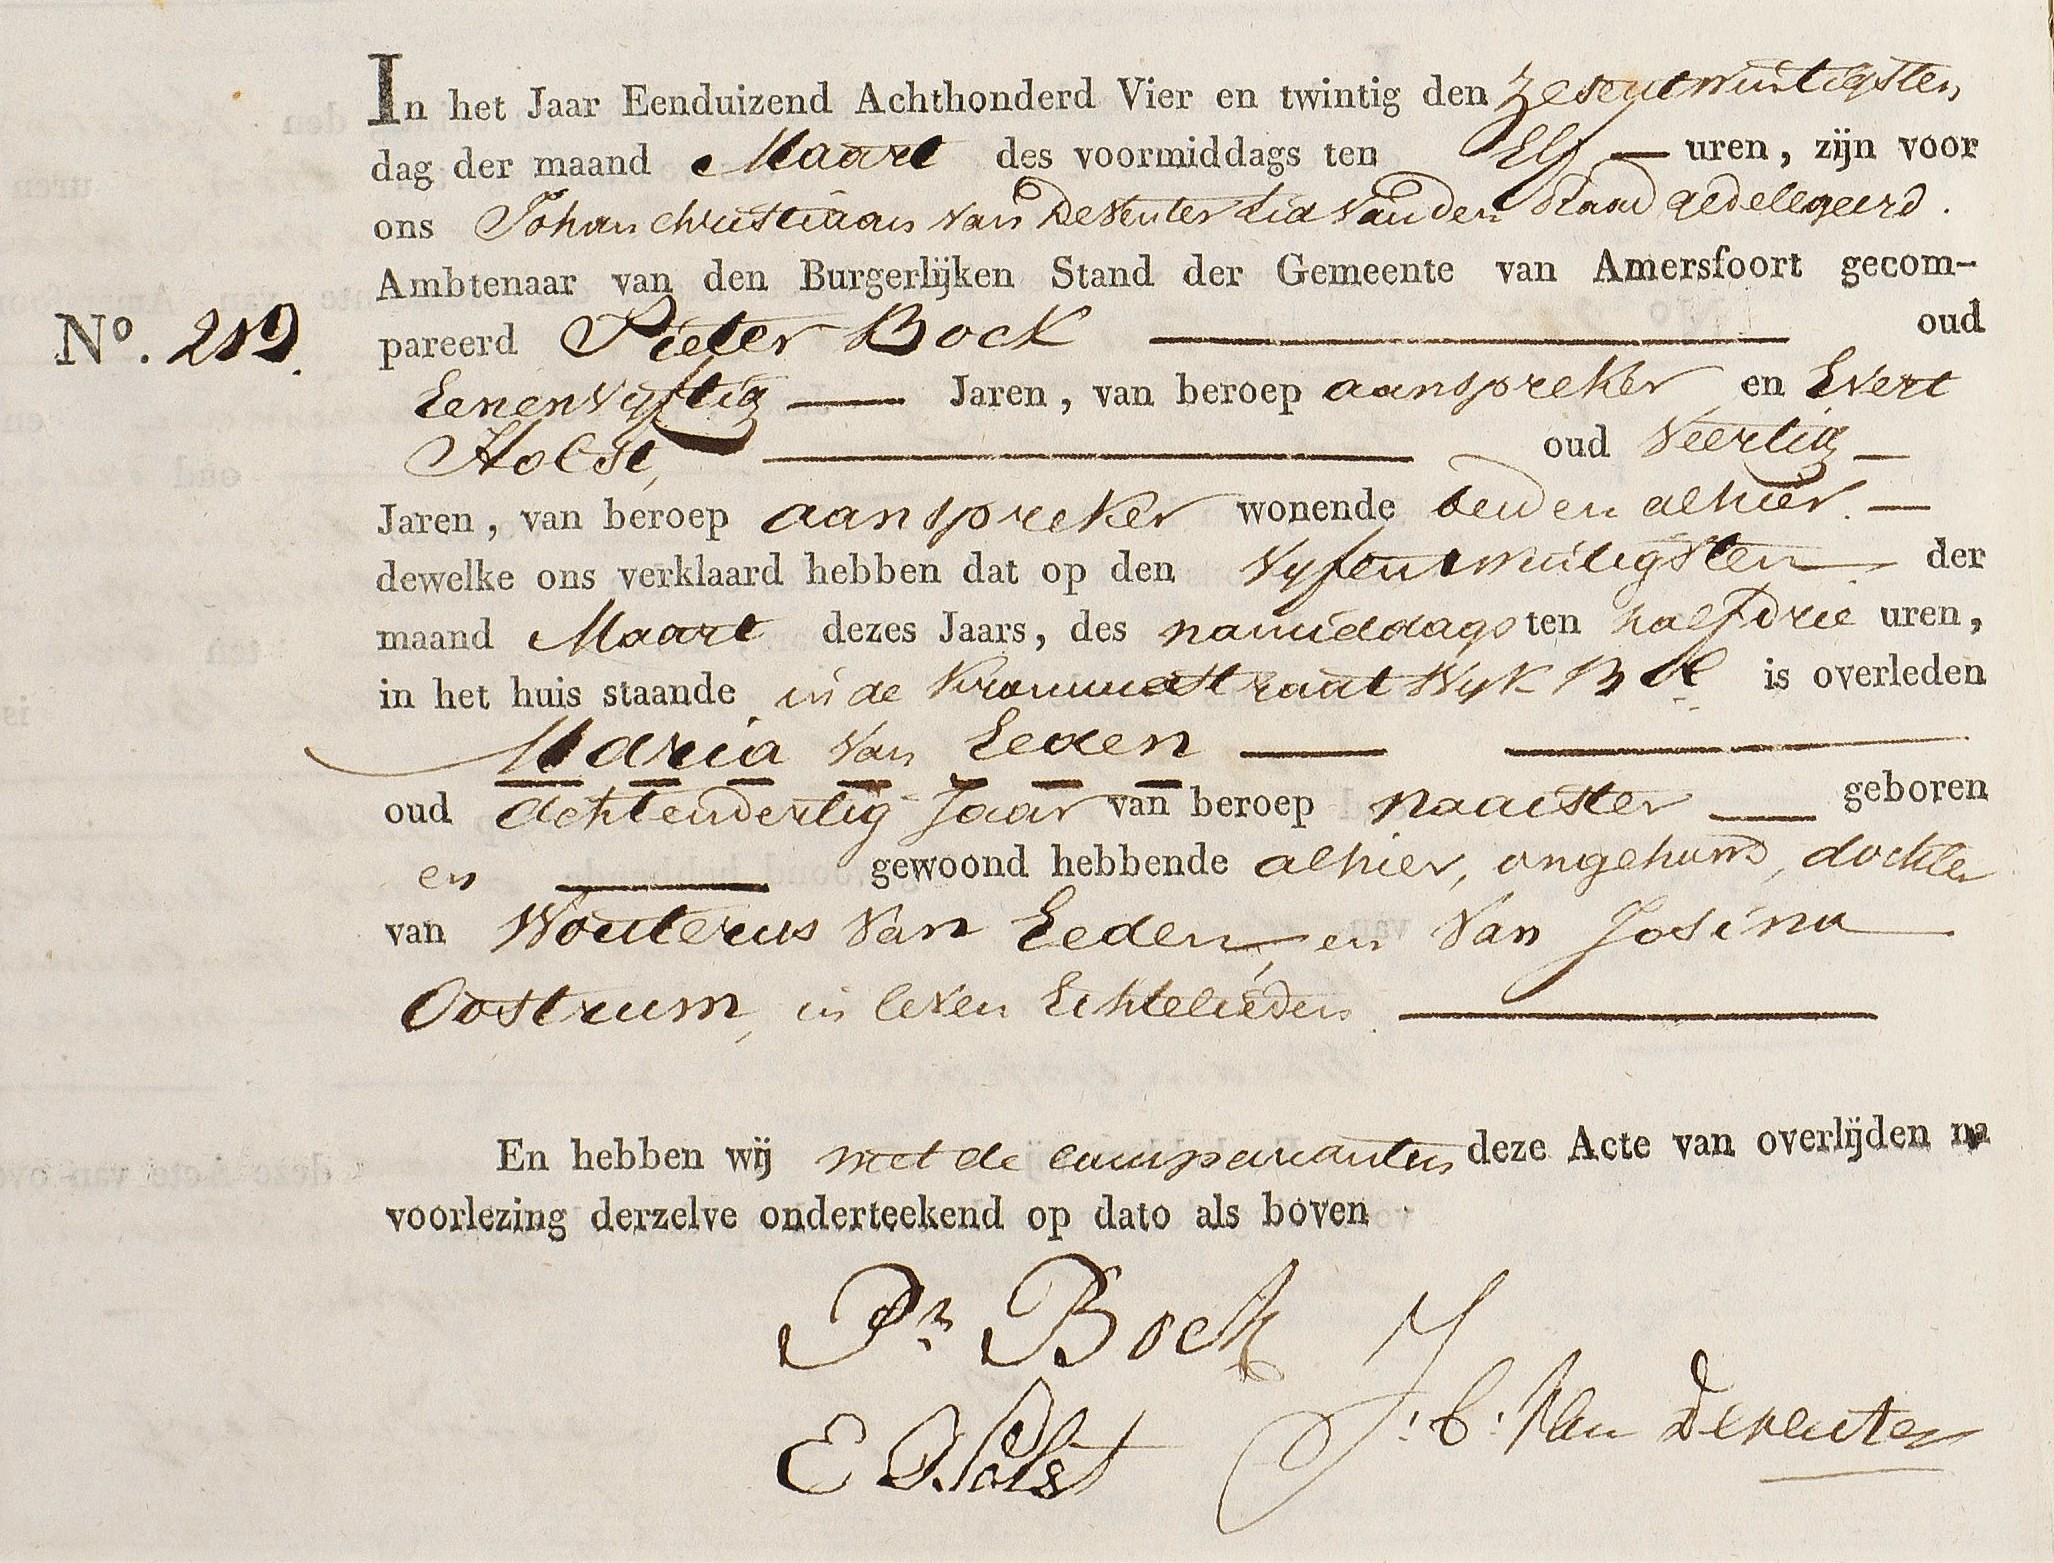 In het Jaar Eenduizend Achthonderd Vier en twintig den zesentwintigsten
dag der maand Maart des voormiddags ten Elf uren, zijn voor
ons Johan Christiaan van Deventer Lid van den Raad gedelegeerd.
Ambtenaar van den Burgerlijken Stand der Gemeente van Amersfoort gecom-
No. pareerd Pieter Bock oud
Eenenvyftig Jaren, van beroep aanspreker en Evert
Holst, oud Veertig
Jaren, van beroep aanspreker wonende beiden alhier.
dewelke ons verklaard hebben dat op den vyfentwintigsten der
maand Maart dezes Jaars, des namiddags ten half drie uren,
in het huis staande in de Krommestraat Wyk B is overleden
Maria van Eeden
oud achtendertig Jaar van beroep naaister geboren
en gewoond hebbende alhier, ongehuwd, dochter
van Wouterus van Eeden, en van Josina
Oostrum, in leven Echtelieden
En hebben wij met de comparanten deze Acte van overlijden na
voorlezing derzelve onderteekend op dato als boven
Pr Bock
E Holst J: C: Van Deventer